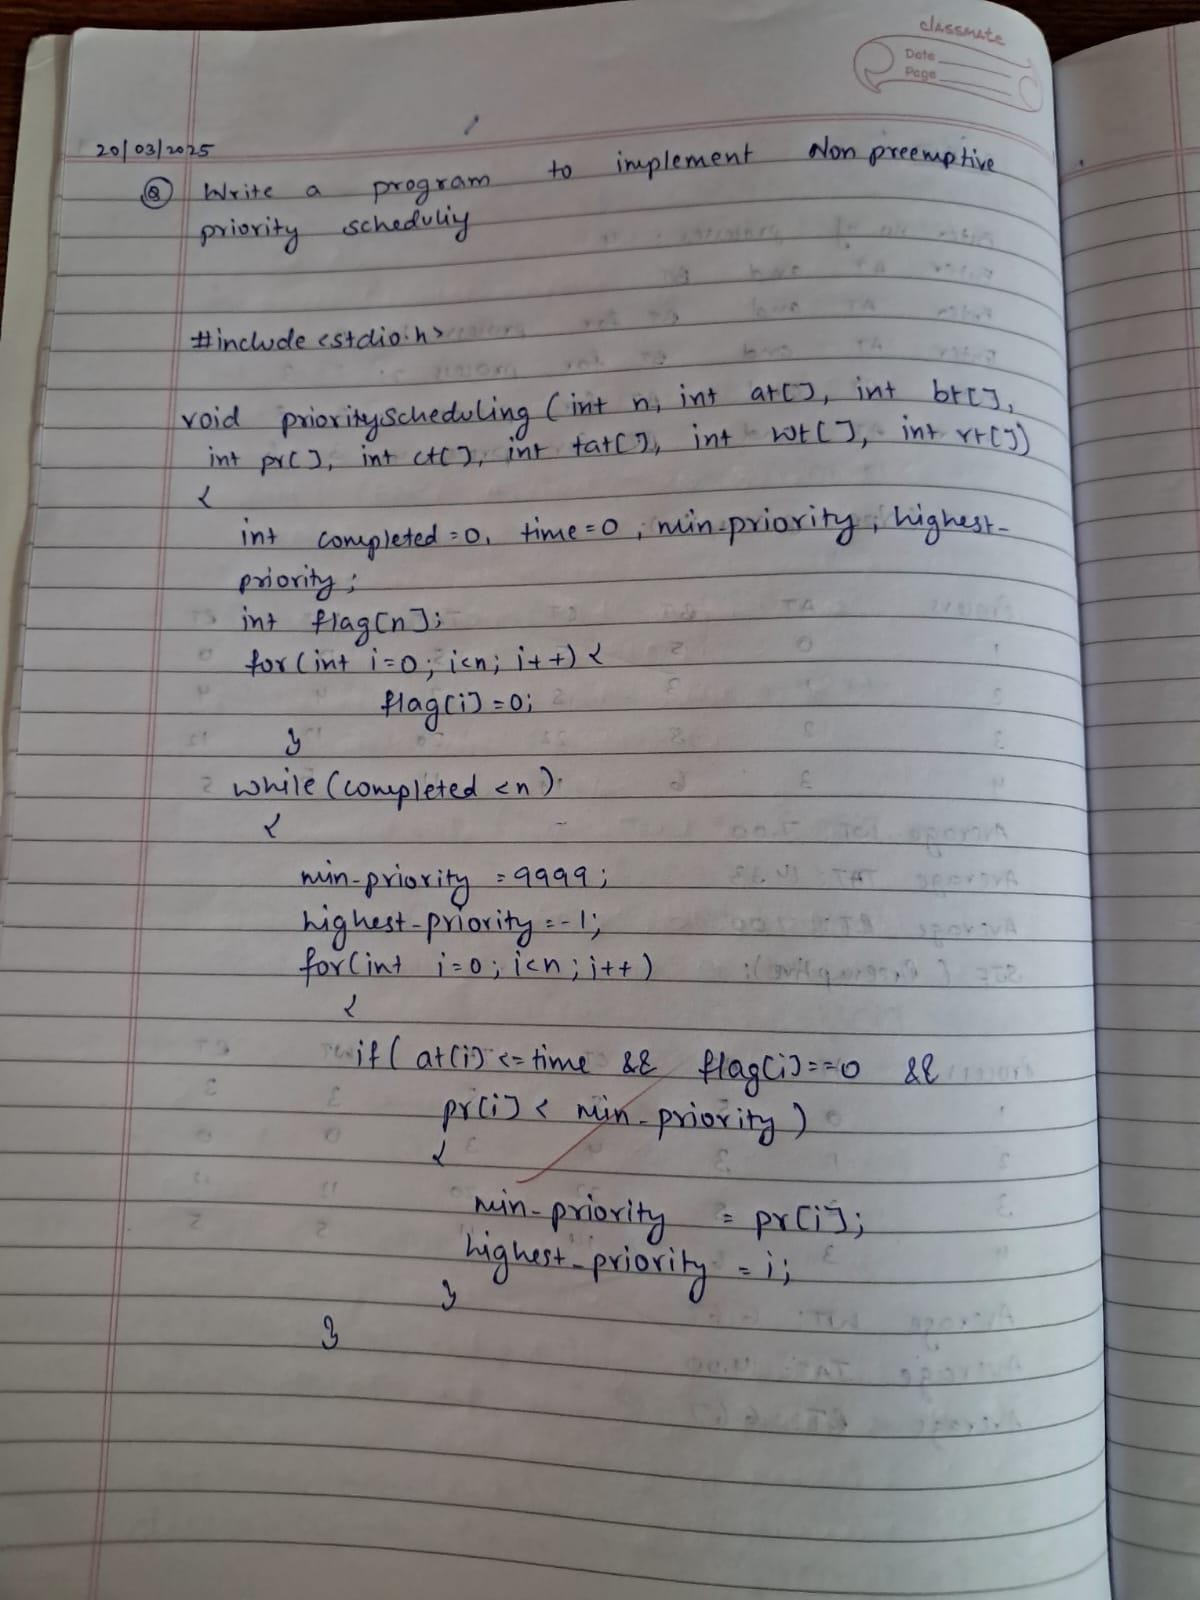 classmate
Date
Page
20/03/2025
Q Write a program to implement Non preemptive
priority scheduliy
#include <stdio.h>
void priorityscheduling (int n, int at[], int bt[],
int pr[], int ct[], int tat[], int wt[], int rt[])
{
int completed = 0, time = 0, min-priority, highest-
priority;
int flag[n];
for (int i=0; i<n; i++) {
flag[i] = 0;
}
while (completed <n)
{
min-priority = 9999;
highest-priority = -1;
for(int i=0; i<n; i++)
{
if( at[i] <= time && flag[i]==0 &&
pr[i] < min-priority)
{
min-priority = pr[i];
highest-priority = i;
}
}